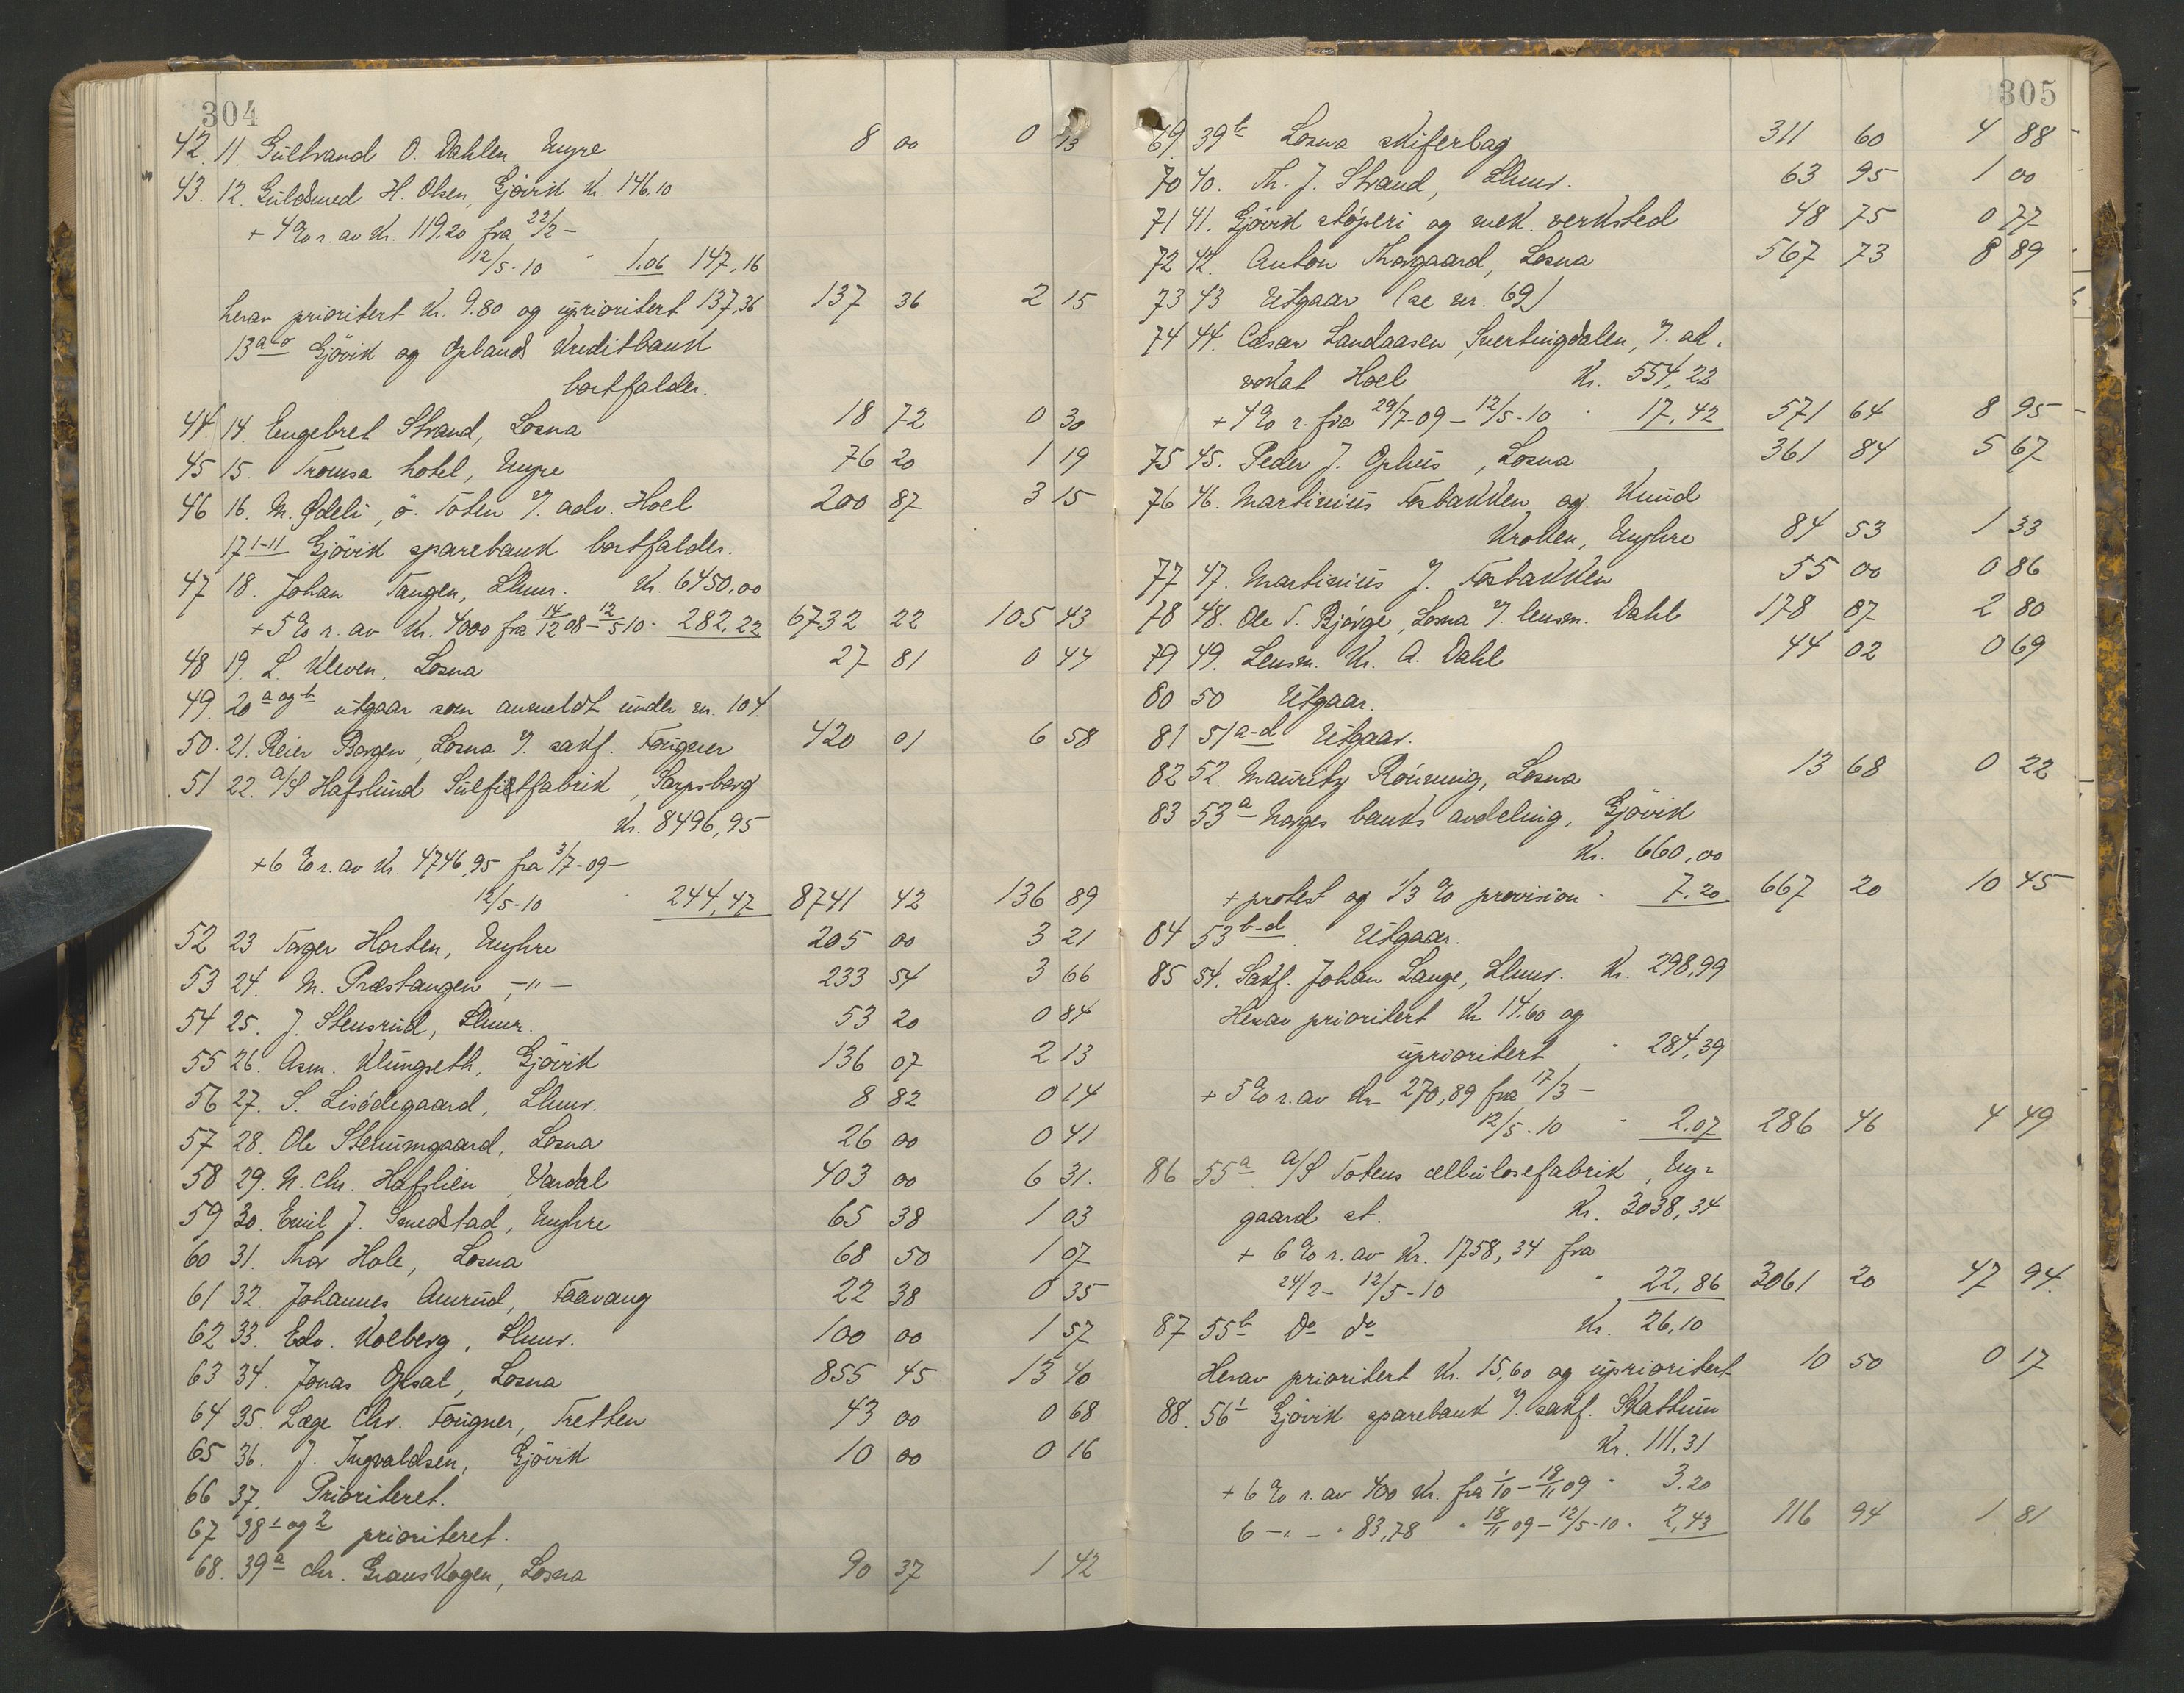 304
42. 11. Gulbrand O. Dahlen, Myre 8 00 0 13
43. 12. Guldsmed H. Olsen, Gjøvik Kr. 146.10
+ 4 % r. av Kr. 119.20 fra 22/2 -
12/5-10 " 1.06 147,16
herav prioritert Kr. 9.80 og uprioritert 137,36 137 36 2 15
13 a- Gjövik og Oplands Kreditbank
bortfalder.
44 14. Engebret Strand, Losna 18 72 0 30
45 15. Tromsa hotel, Myre 76 20 1 19
46 16. M. Ødeli, ö. Toten v/. adv. Hoel 200 87 3 15
17 1-11 Gjövik sparebank bortfalder.
47 18. Johan Tangen, Lhmr. Kr. 6450.00
+ 5 % r. av Kr. 4000 fra 14/12 08 - 12/5 10 - 282.22 6732 22 105 43
48 19. L. Kleven, Losna 27 81 0 44
49. 20 a og b utgaar som anmeldt under nr. 104.
50. 21. Reier Borgen, Losna v/. sakf. Fougner 420 01 6 58
51 22. A/S Hafslund Sulfitfabrik, Sarpsborg
Kr. 8496,95
+ 6 % r. av Kr. 4746,95 fra 3/7-09 -
12/5-10 " 244,47 8741 42 136 89
52 23 Torger Horten, Myhre 205 00 3 21
53 24. M. Præstangen -"- 233 54 3 66
54 25. J. Stensrud, Lhmr. 53 20 0 84
55 26. Asm. Klungseth, Gjövik 136 07 2 13
56 27. S. Lisödegaard, Lhmr. 8 82 0 14
57 28. Ole Stenumgaard, Losna 26 00 0 41
58 29. N. Chr. Hafslien, Vardal 403 00 6 31.
59 30. Emil J. Smedstad, Myhre 65 38 1 03
60 31. Thor Hole, Losna 68 50 1 07
61 32. Johannes Amrud, Faavang 22 38 0 35
62 33. Edv. Kolberg, Lhmr. 100 00 1 57
63 34. Jonas Opsal, Losna 855 45 13 40
64 35. Læge Chr. Fougner, Tretten 43 00 0 68
65 36. J. Ingvaldsen, Gjövik 10 00 0 16
66 37. Prioriteret.
67 38 1 og 2 prioriteret.
68. 39 a Chr. Granskogen, Losna 90 37 1 42
305
69. 39 b Losna skiferlag 311 60 4 88
70 40. Th. J. Strand, Lhmr. 63 95 1 00
71 41. Gjövik stöperi og mek. verksted 48 75 0 77
72 42. Anton Thorgaard, Losna 567 73 8 89
73 43 Utgaar (se nr. 69)
74 44. Cæsar Landaasen, Snertingdalen, v/. ad-
vokat Hoel Kr. 554,22
+ 4 % r. fra 29/7-09 - 12/5-10 " 17,42 571 64 8 95
75 45. Peder J. Ophus, Losna 361 84 5 67
76 46. Martinius Fosbakken og Knud
Kroken, Myhre 84 53 1 33
77 47. Martinius J. Fosbakken 55 00 0 86
78 48. Ole T. Bjørge, Losna v/. lensm. Dahl 178 87 2 80
79 49. Lensm. Kr. A. Dahl 44 02 0 69
80 50 Utgaar.
81 51 a-d Utgaar.
82 52. Mauritz Rönning, Losna 13 68 0 22
83 53 a Norges banks avdeling, Gjövik
Kr. 660,00
+ protest og 1/3 % provision - 7.20 667 20 10 45
84 53 b-d Utgaar.
85 54. Sakf. Johan Lange, Lhmr. Kr. 298,99
Herav prioritert Kr 14.60 og
uprioritert " 284,39
+ 5 % r. av Kr 270,89 fra 17/3 -
12/5-10 " 2.07 286 46 4 49
86 55 a. A/S Totens cellulosefabrik, Ny-
gaard st. Kr. 3038,34
+ 6 % r. av Kr. 1758,34 fra
24/2 - 12/5-10 " 22,86 3061 20 47 94.
87 55 b Do do Kr. 26,10
Herav prioritert Kr. 15,60 og uprioritert 10 50 0 17
88. 56 1 Gjövik sparebank v/. sakf. Skattum
Kr. 111,31
+ 6 % r. av 400 Kr. fra 1/10 - 18/11 09 " 3.20
6 -"- " 83,78 " 18/11 09 - 12/5-10 " 2,43 116 94 1 81